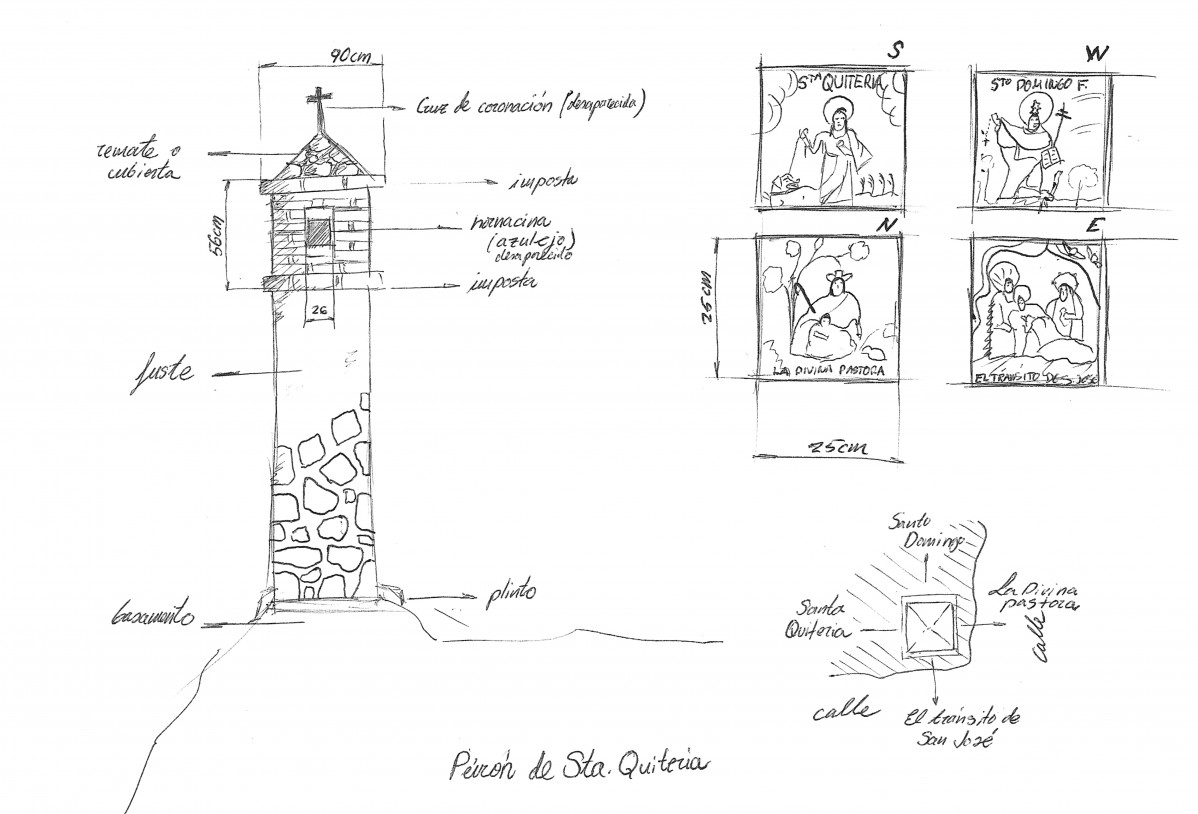 90cm
Cruz de coronación (desaparecida)
remate o
cubierta
imposta
56cm
hornacina
(azulejo)
desaparecido
imposta
26
fuste
plinto
basamento
S
STA QUITERIA
W
STO DOMINGO F.
N
LA DIVINA PASTORA
E
EL TRÁNSITO DE S. JOSÉ
25cm
25cm
Santo
Domingo
Santa
Quiteria
La Divina
pastora
calle
calle
El tránsito de
San José
Peirón de Sta. Quiteria